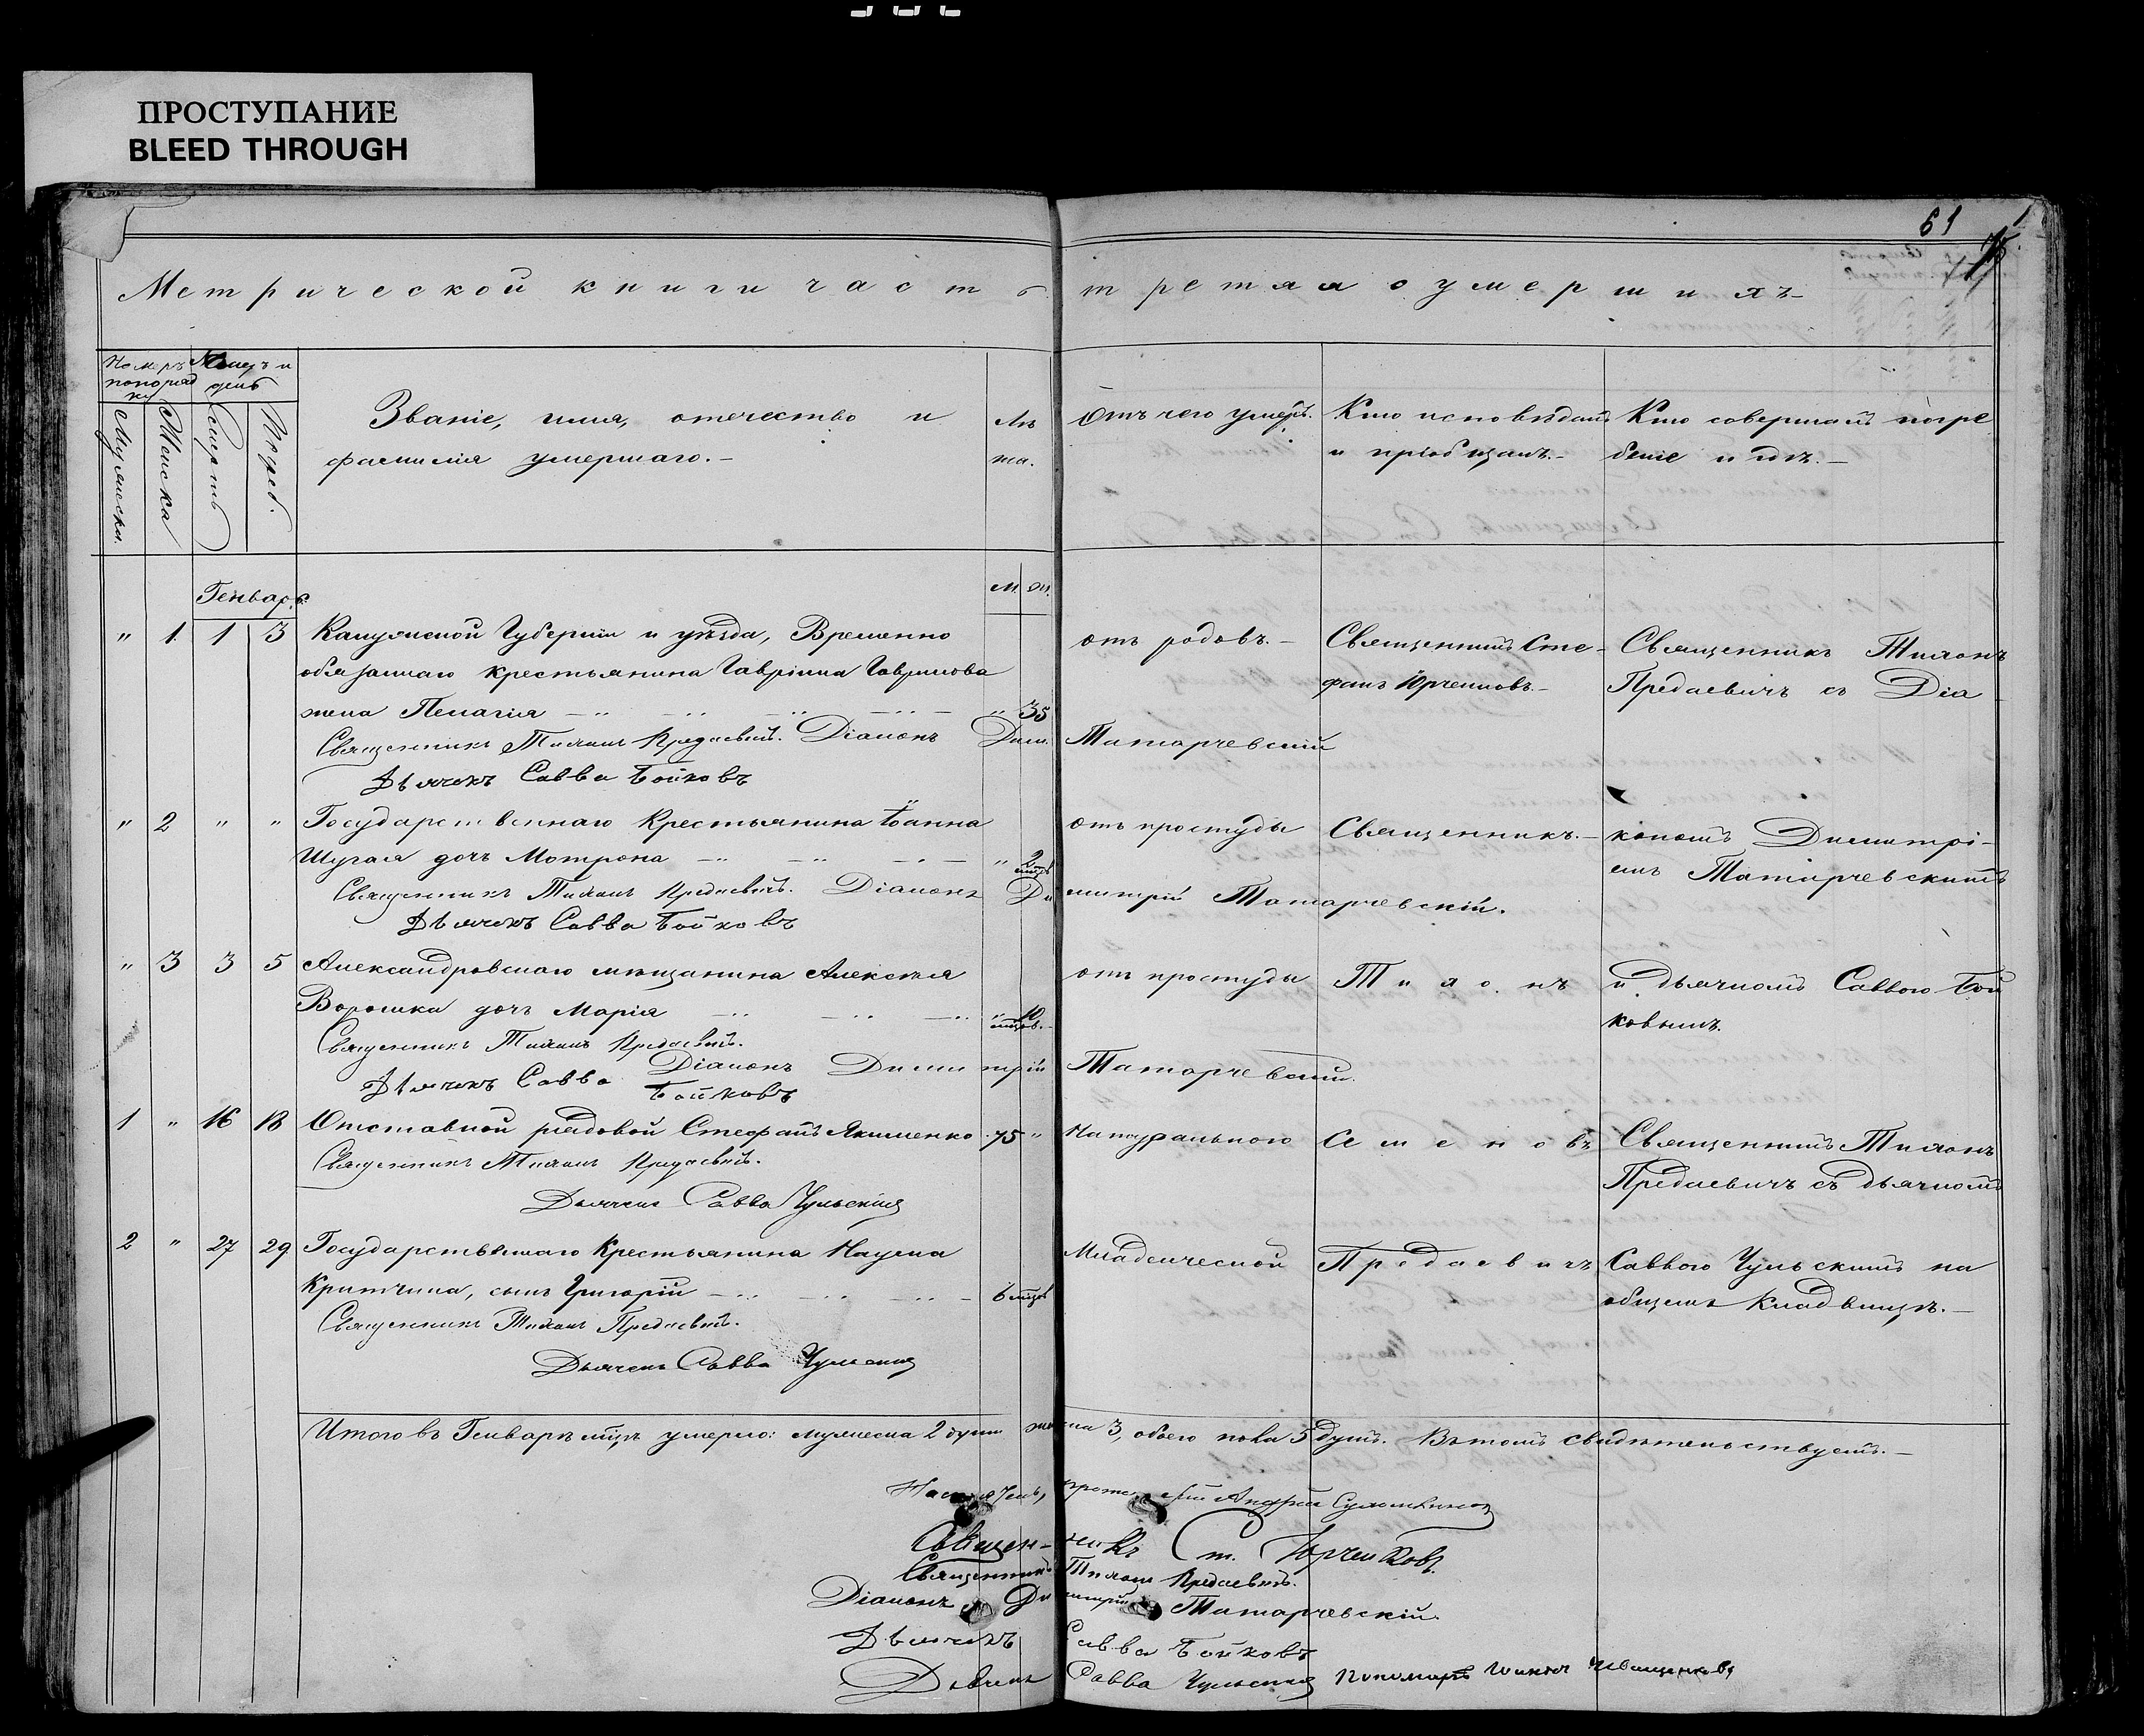 ПРОСТУПАНИЕ
BLEED THROUGH
61
Метрической книги часть третяя о умершихъ
Номеръ по поряд ку
Месяцъ и день
Мужески.
Женска
Смерть
Погреб.
Званіе, имя, отечество и
фамилія умершаго.
Лѣ
та.
Отъ чего умеръ.
Кто исповѣдалъ
и пріобщалъ.
Кто совершалъ погре
беніе и гдѣ.
Генварь
М. Ж.
" 1. 1 3 Калужской Губерніи и уѣзда, Временно
обязаннаго крестьянина Гавріила Гаврилова
жена Пелагія " 35
отъ родовъ.
Священникъ Сте-
фанъ Юрченковъ.
Священникъ Тихонъ
Предаевичъ съ Діа
Священникъ Тихонъ Предаевичъ. Діаконъ Дим. Татарчевскій
Дьячекъ Савва Бойковъ
" 2 " " Государственнаго Крестьянина Іоанна
дочь Мотрона " 2 мцъ
отъ простуды
Священникъ.
кономъ Димитрі-
емъ Татарчевскимъ
Священникъ Тихонъ Предаевичъ. Діаконъ Димитрій Татарчевскій.
Дьячекъ Савва Бойковъ
" 3 3 5 Александровскаго мѣщанина Алексѣя
Ворошка дочь Марія " 10 мцов.
отъ простуды
Тихонъ
и дьячкомъ Саввою Бой
ковымъ.
Священникъ Тихонъ Предаевичъ.
Діаконъ Димитрій Татарчевскій.
Дьячекъ Савва Бойковъ
1 " 16 18 Отставной рядовой Стефанъ Якименко 75 "
Натурального
Священникъ Тихонъ
Предаевичъ съ дьячкомъ
Священникъ Тихонъ Предаевичъ.
Дьячекъ Савва Чульскій
2 " 27 29 Государственнаго Крестьянина Наума
Критчина, сынъ Григорій 6 мцъ
Младенческой
Предаевичъ
Саввою Чульскимъ на
общемъ Кладбищѣ.
Священникъ Тихонъ Предаевичъ.
Дьячекъ Савва Чульскій
Итого въ Генварѣ мцѣ умерло: мужеска 2 души женска 3, обоего пола 5 душъ. Въ томъ свидѣтельствуемъ.
Андрей
Священникъ Ст. Юрченковъ.
Священникъ Тихонъ Предаевичъ.
Діаконъ Димитрій Татарчевскій.
Дьячекъ Савва Бойковъ
Дьячекъ Савва Чульскій Пономарь Иванъ Иващенковъ